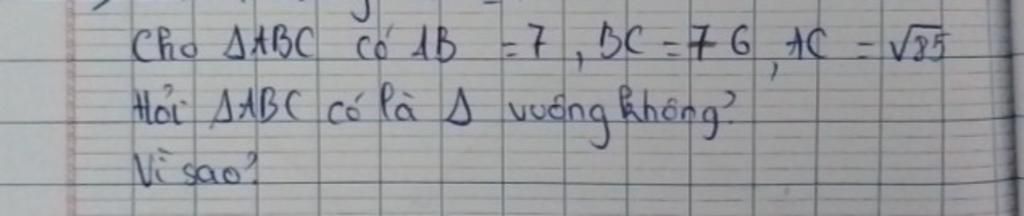 Cho ΔABC có AB = 7, BC = 6, AC = √85
Hỏi ΔABC có là Δ vuông không?
Vì sao?